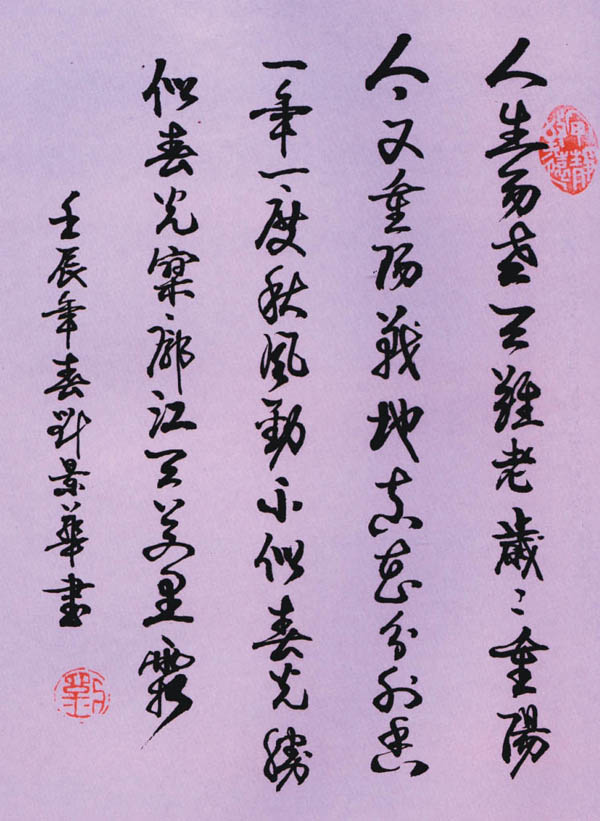 人生易老天難老歲〻重陽
今又重陽戰地黃花分外香
一年一度秋風勁不似春光勝
似春光寥廓江天萬里霜
壬辰年春劉景華書